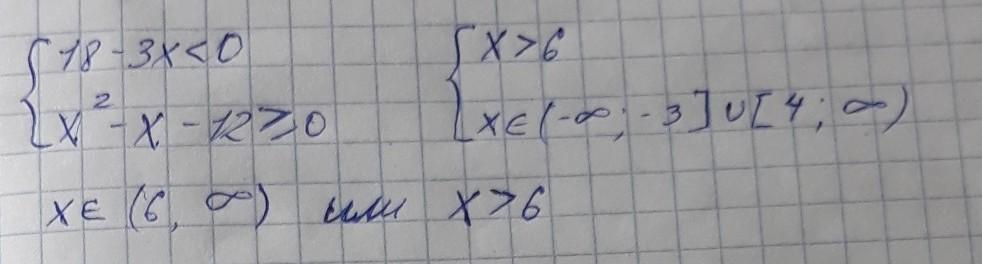 {18 - 3x < 0 {x > 6
x² - x - 12 ≥ 0 x ∈ (-∞; -3] ∪ [4; ∞)
x ∈ (6, ∞) или x > 6